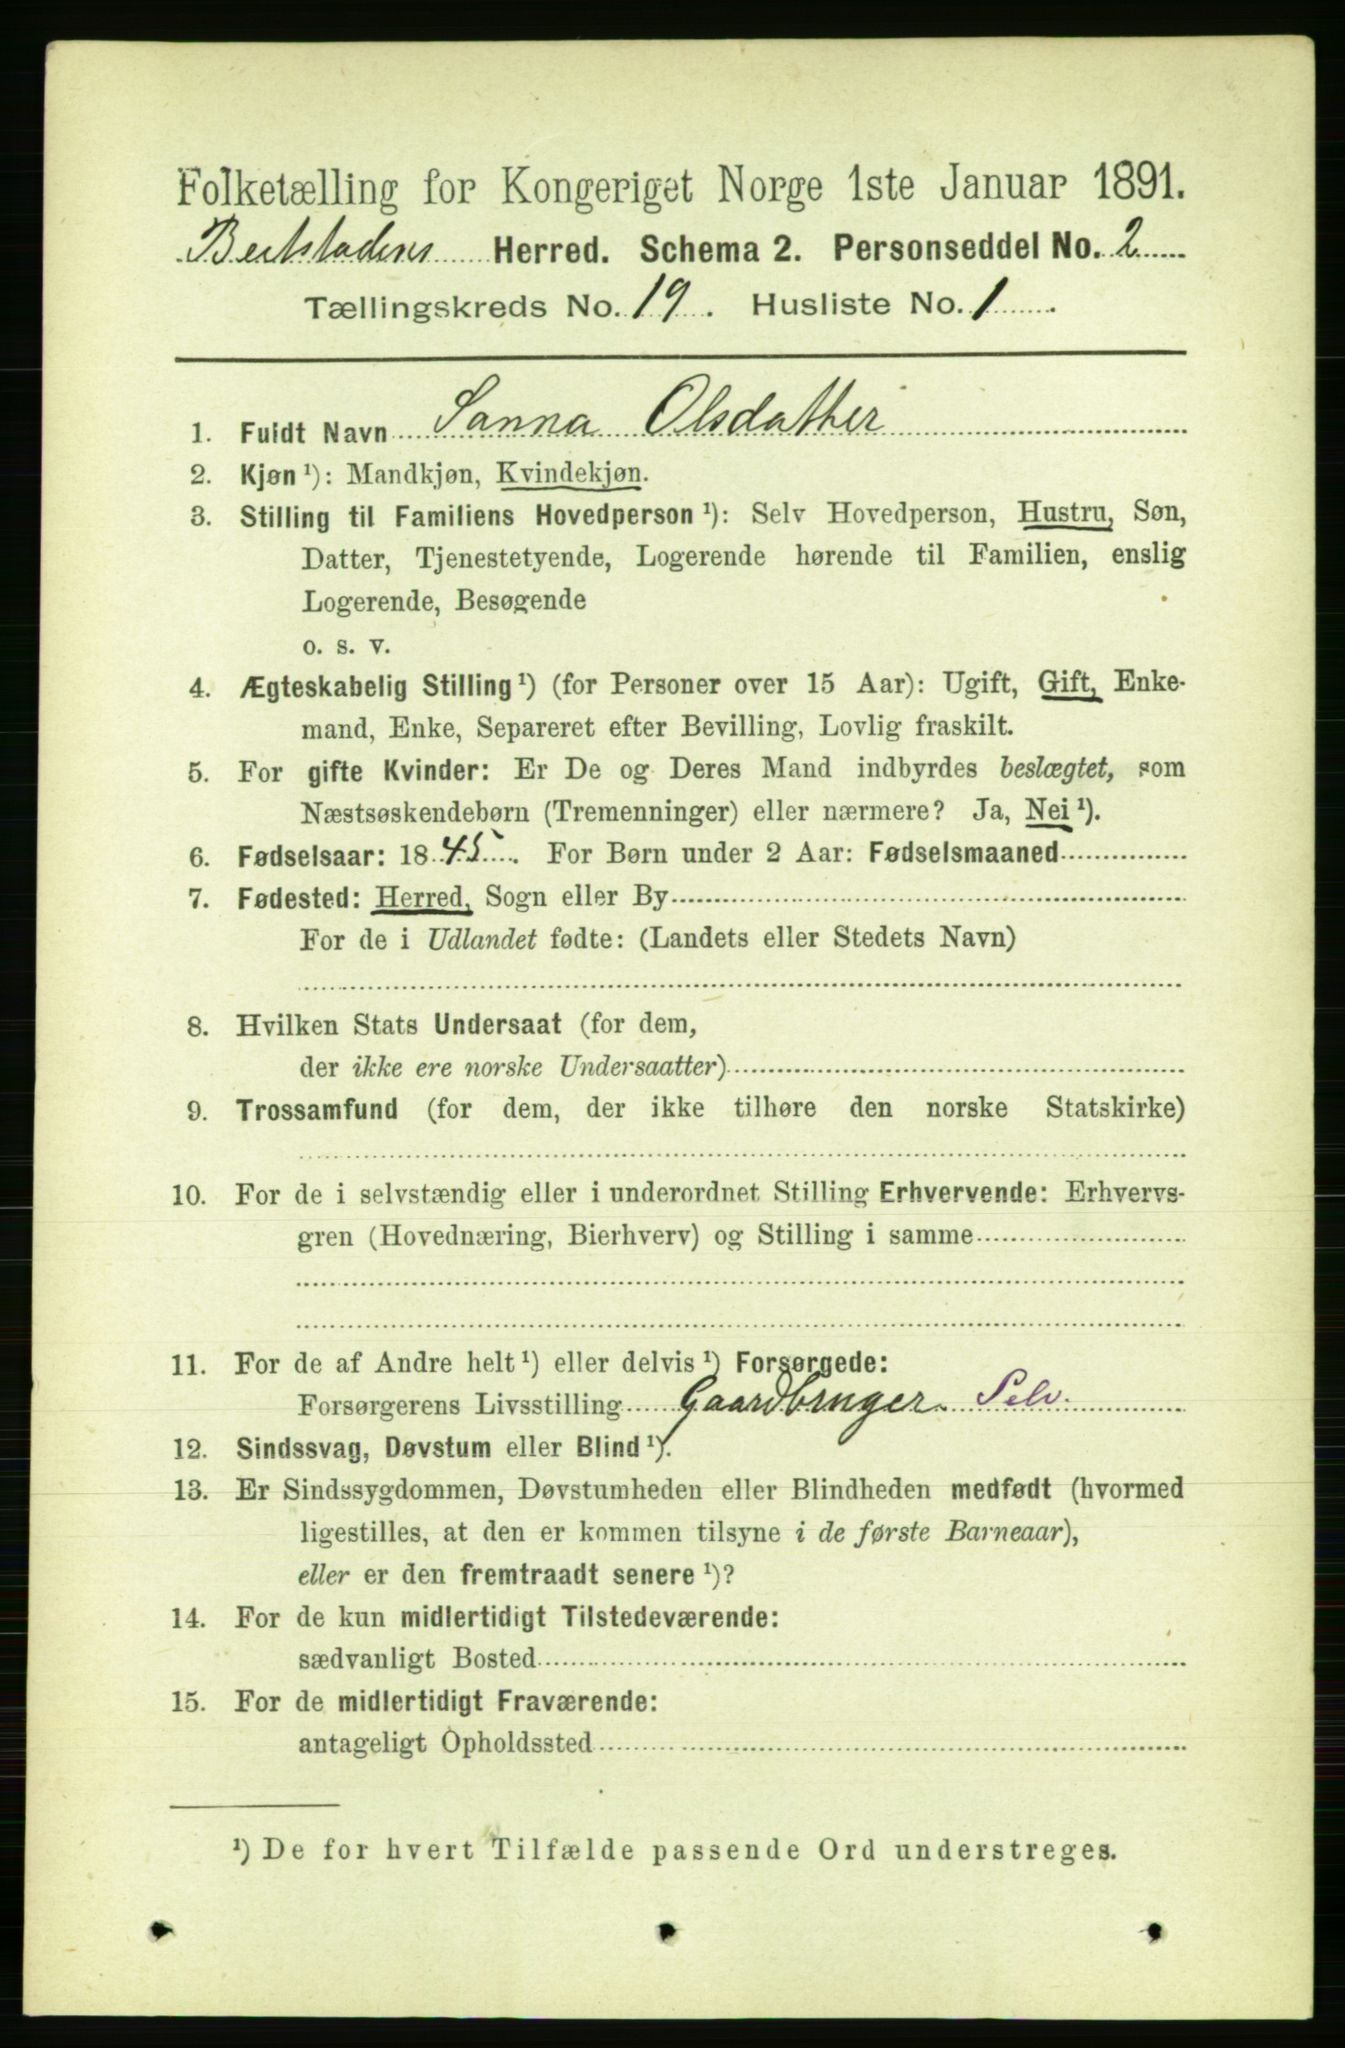 Folketælling for Kongeriget Norge 1ste Januar 1891.
Beitstadens Herred. Schema 2. Personseddel No. 2
Tællingskreds No. 19. Husliste No. 1.
1. Fuldt Navn Sanna Olsdatter
2. Kjøn ¹): Mandkjøn, Kvindekjøn.
3. Stilling til Familiens Hovedperson ¹): Selv Hovedperson, Hustru, Søn,
Datter, Tjenestetyende, Logerende hørende til Familien, enslig
Logerende, Besøgende
o. s. v.
4. Ægteskabelig Stilling ¹) (for Personer over 15 Aar): Ugift, Gift, Enke-
mand, Enke, Separeret efter Bevilling, Lovlig fraskilt.
5. For gifte Kvinder: Er De og Deres Mand indbyrdes beslægtet, som
Næstsøskendebørn (Tremenninger) eller nærmere? Ja, Nei ¹).
6. Fødselsaar: 1845. For Børn under 2 Aar: Fødselsmaaned
7. Fødested: Herred, Sogn eller By
For de i Udlandet fødte: (Landets eller Stedets Navn)
8. Hvilken Stats Undersaat (for dem,
der ikke ere norske Undersaatter)
9. Trossamfund (for dem, der ikke tilhøre den norske Statskirke)
10. For de i selvstændig eller i underordnet Stilling Erhvervende: Erhvervs-
gren (Hovednæring, Bierhverv) og Stilling i samme
11. For de af Andre helt ¹) eller delvis ¹) Forsørgede:
Forsørgerens Livsstilling Gaardbruger. Selv.
12. Sindssvag, Døvstum eller Blind ¹).
13. Er Sindssygdommen, Døvstumheden eller Blindheden medfødt (hvormed
ligestilles, at den er kommen tilsyne i de første Barneaar),
eller er den fremtraadt senere ¹)?
14. For de kun midlertidigt Tilstedeværende:
sædvanligt Bosted
15. For de midlertidigt Fraværende:
antageligt Opholdssted
¹) De for hvert Tilfælde passende Ord understreges.